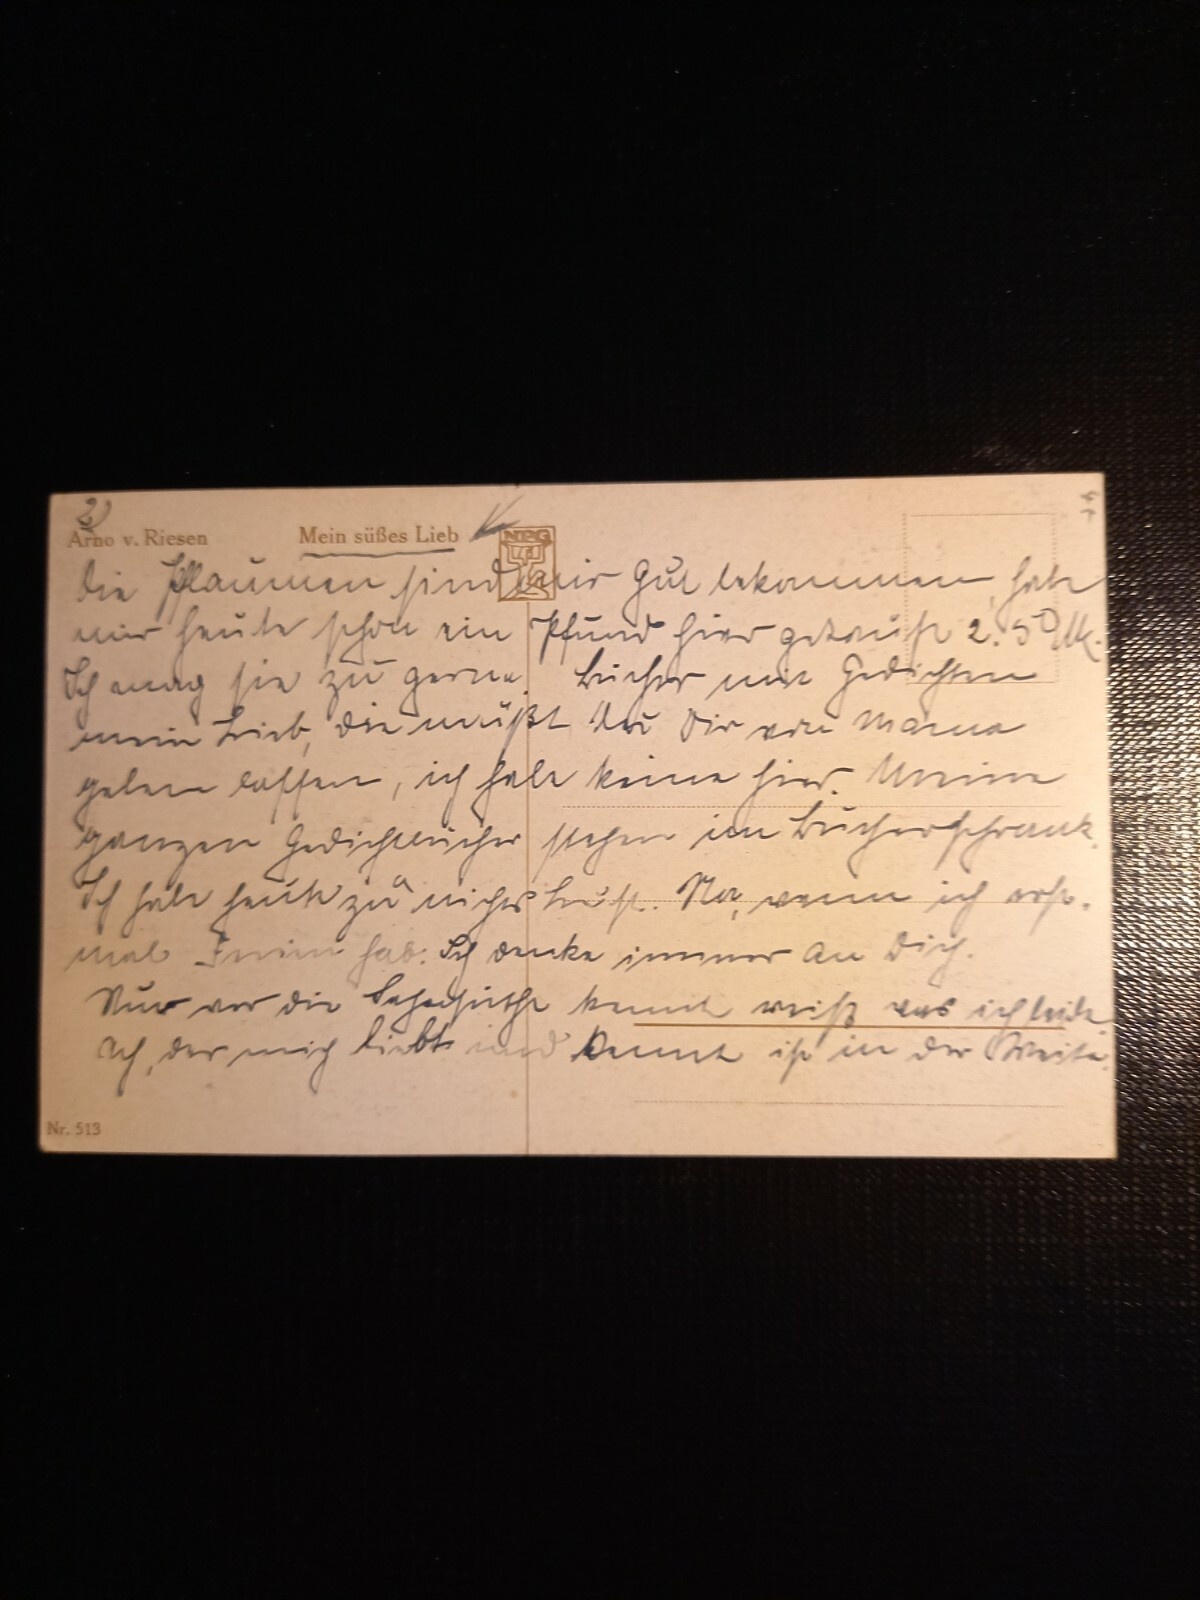 2)
Arno v. Riesen Mein süßes Lieb
NPG
Die Pflaumen sind mir gut bekommen, habe
mir heute schon ein Pfund hier gekauft 2.50 M.
Ich mag sie zu gerne. Bücher mit Gedichten
mein Lieb, die mußt Du Dir von Mama
geben lassen, ich habe keine hier. Meine
ganzen Gedichtbücher stehen im Bücherschrank.
Ich habe heute zu nichts Lust. Na, wenn ich erst
mal hab. Ich denke immer an Dich.
Nur wer die Sehnsucht kennt weiß was ich leide
Ach, der mich liebt und kennt ist in der Weite.
Nr. 513